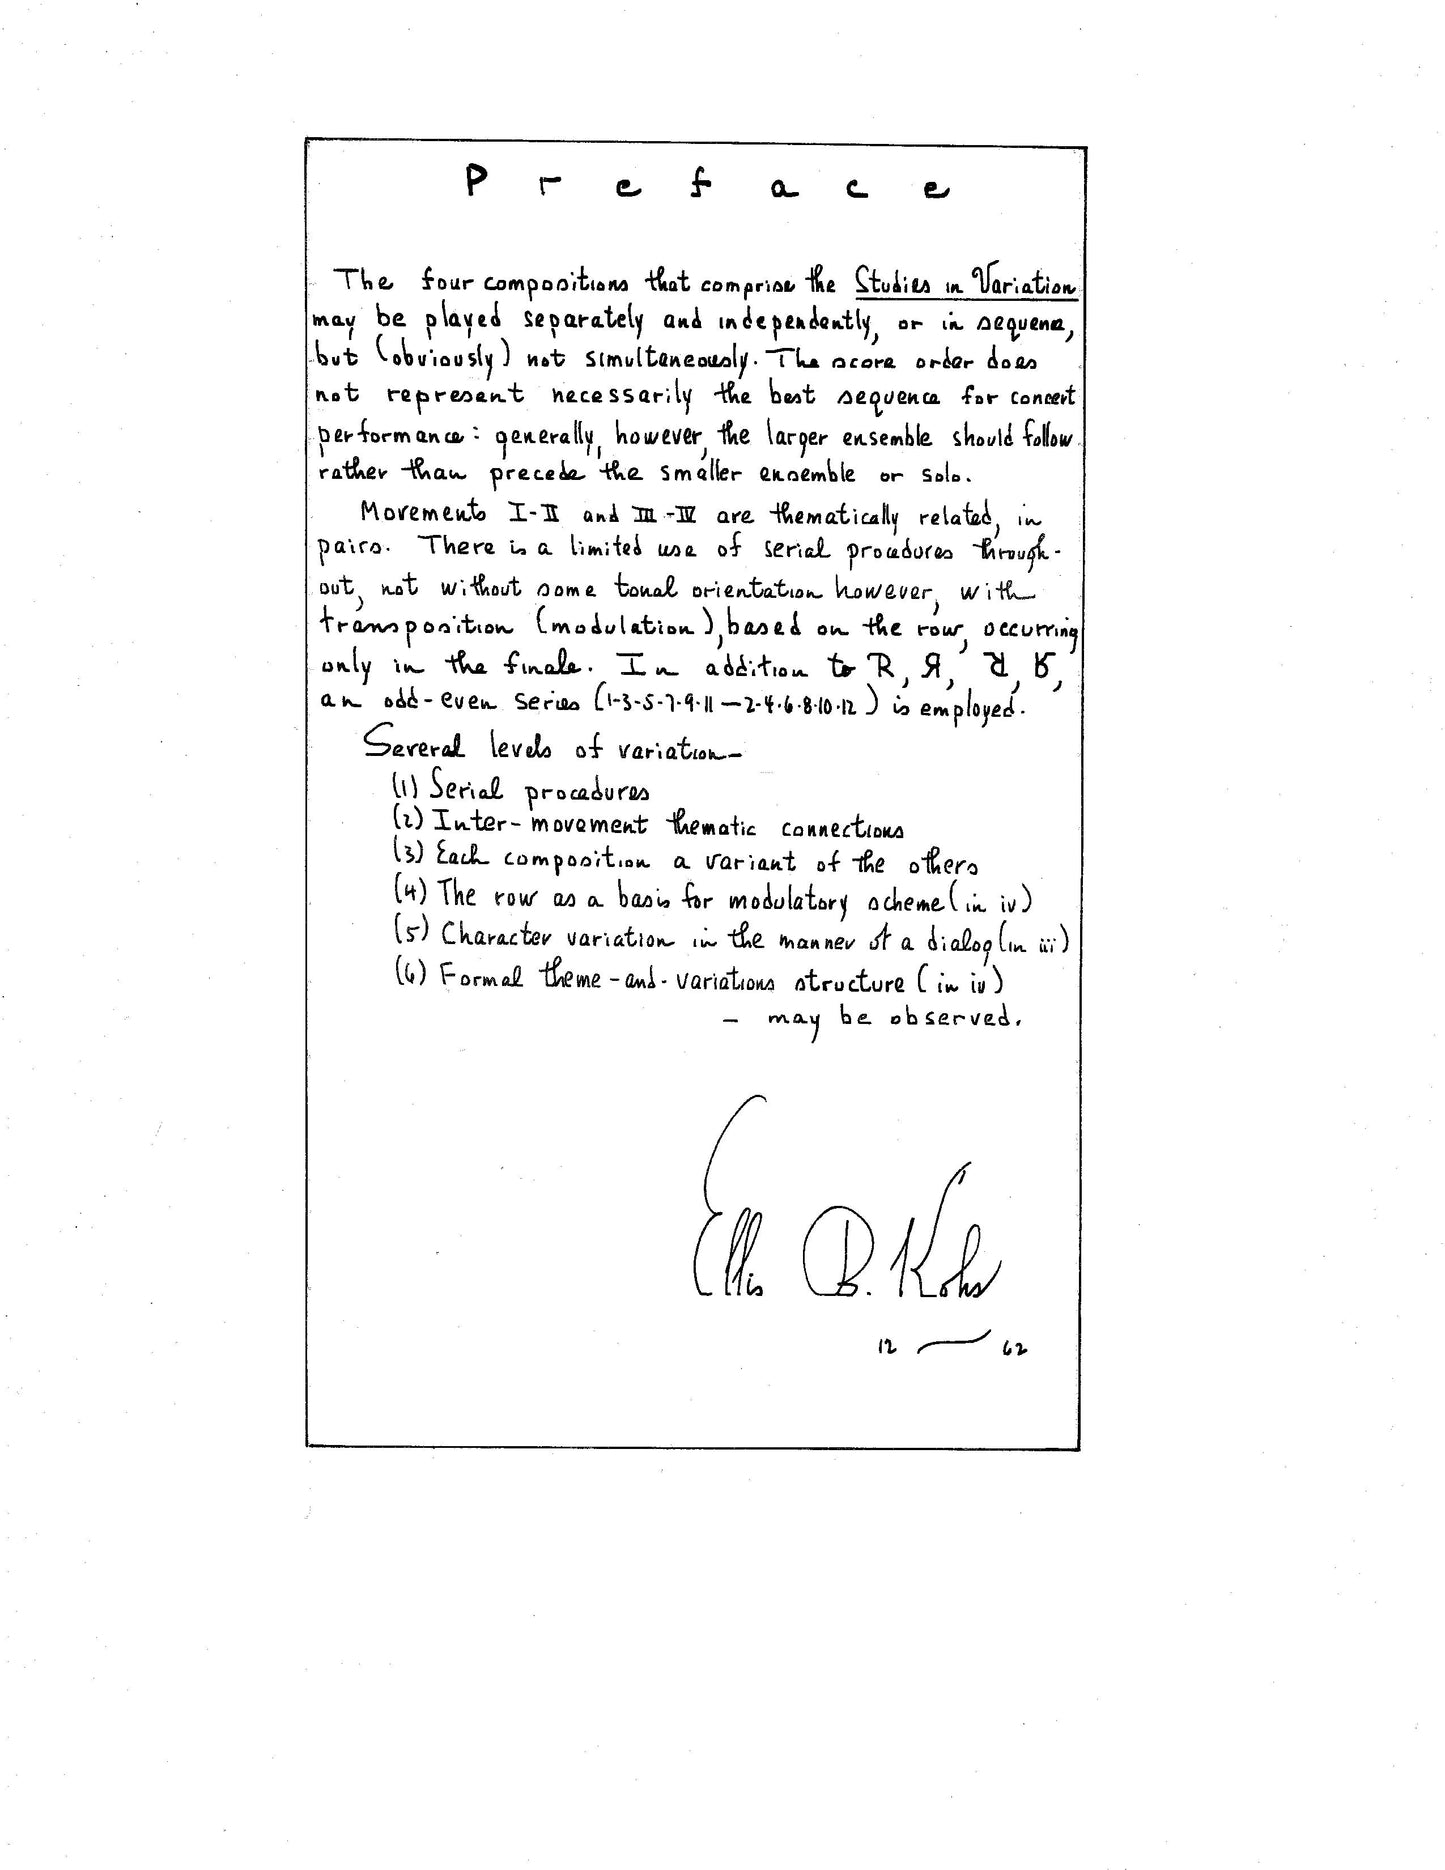 Preface
The four compositions that comprise the Studies in Variation
may be played separately and independently, or in sequence,
but (obviously) not simultaneously. The score order does
not represent necessarily the best sequence for concert
performance: generally, however, the larger ensemble should follow
rather than precede the smaller ensemble or solo.
Movements I-II and III-IV are thematically related, in
pairs. There is a limited use of serial procedures through-
out, not without some tonal orientation however, with
transposition (modulation), based on the row, occurring
only in the finale. In addition to R, Я, ᖉ, ʁ,
an odd-even series (1-3-5-7-9-11—2-4-6-8-10-12) is employed.
Several levels of variation—
(1) Serial procedures
(2) Inter-movement thematic connections
(3) Each composition a variant of the others
(4) The row as a basis for modulatory scheme (in iv)
(5) Character variation in the manner of a dialog (in iii)
(6) Formal theme-and-variations structure (in iv)
— may be observed.
Ellis B. Kohs
12 — 62